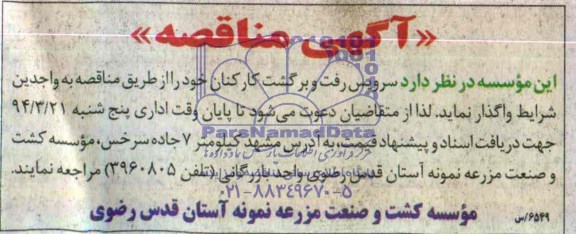 «آگهی مناقصه»
این مؤسسه در نظر دارد سرویس رفت و برگشت کارکنان خود را از طریق مناقصه به واجدین
شرایط واگذار نماید. لذا از متقاضیان دعوت می‌شود تا پایان وقت اداری پنج شنبه ۹۴/۳/۲۱
جهت دریافت اسناد و پیشنهاد قیمت، به آدرس مشهد کیلومتر ۷ جاده سرخس، مؤسسه کشت
و صنعت مزرعه نمونه آستان قدس رضوی واحد بازرگانی (تلفن ۳۹۶۰۸۰۵) مراجعه نمایند.
مؤسسه کشت و صنعت مزرعه نمونه آستان قدس رضوی
۶۵۴۹/س
ParsNamadData
۰۲۱-۸۸۳۴۹۶۷۰-۵